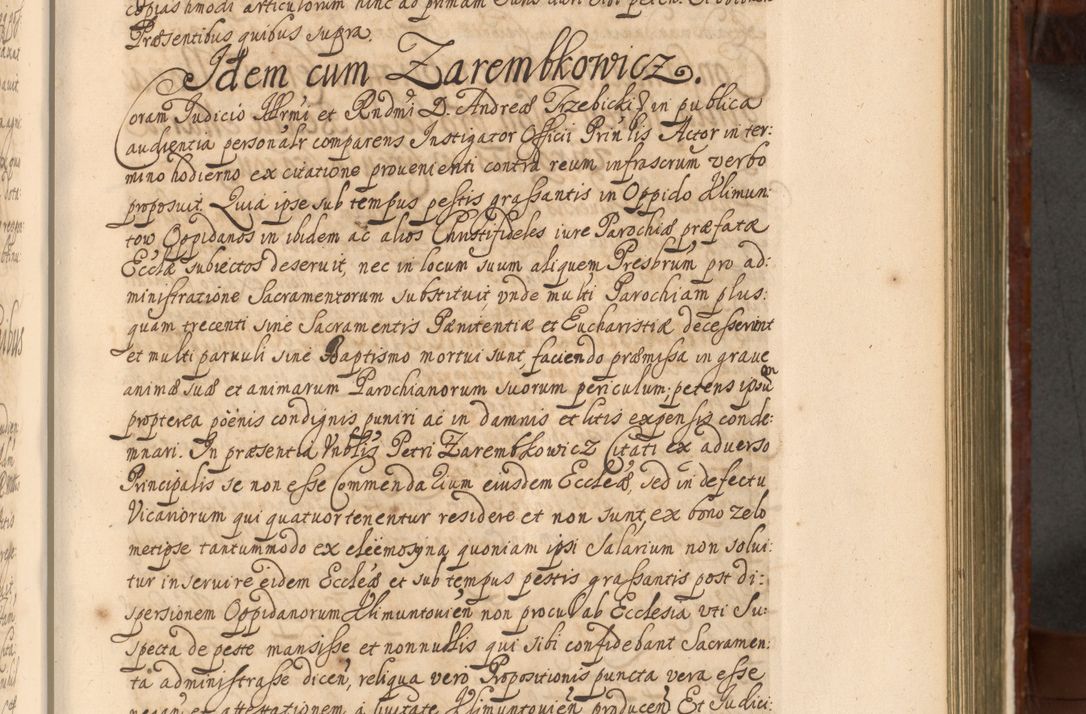 copias hmodi articulorum hinc ad primam Curiae
Praesentibus quibus supra.
Idem cum Zarembkowicz.
Coram Judicio Illrmi et Rndmi D. Andreae Trzebicki in publica
audientia personalr comparens Instigator Officii Prinlis Actor in ter:
mino hodierno ex citatione prouenienti contra reum infrascrum verbo
proposuit. Quia ipse sub tempus pestis grassantis in Oppido Klimun:
tow Oppidanos in ibidem ac alios Christifideles iure Parochiae praefatae
Ecclae subiectos deseruit, nec in locum suum aliquem Presbrum pro ad:
ministratione Sacramentorum substituit, vnde multi Parochiam plus:
quam trecenti sine Sacramentis Paenitentiae et Eucharistiae decesserint
et multi paruuli sine Baptismo mortui sunt, faciendo praemissa in graue
animae suae et animarum Parochianorum suorum periculum; petens ipsum
propterea poenis condignis puniri ac in damnis et litis expensis conde:
mnari. In praesentia Vnblis Petri Zarembkowicz Citati ex aduerso
Principalis se non esse Commendarium eiusdem Eccleae, sed in defectu
Vicariorum qui quatuor tenentur residere et non sunt, ex bono zelo
metipse tantummodo ex eleëmosyna quoniam ipsi Salarium non solui:
tur inseruire eidem Eccleae et sub tempus pestis grassantis post di:
spersionem Oppidanorum Klimuntouien non procul ab Ecclesia vti su:
specta de peste mansisse et nonnullis qui sibi confidebant Sacramen:
ta administrasse dicen, reliqua vero Propositionis puncta vera esse
negan et attestationem a Ciuitate Klimuntouien producen Et Judici: